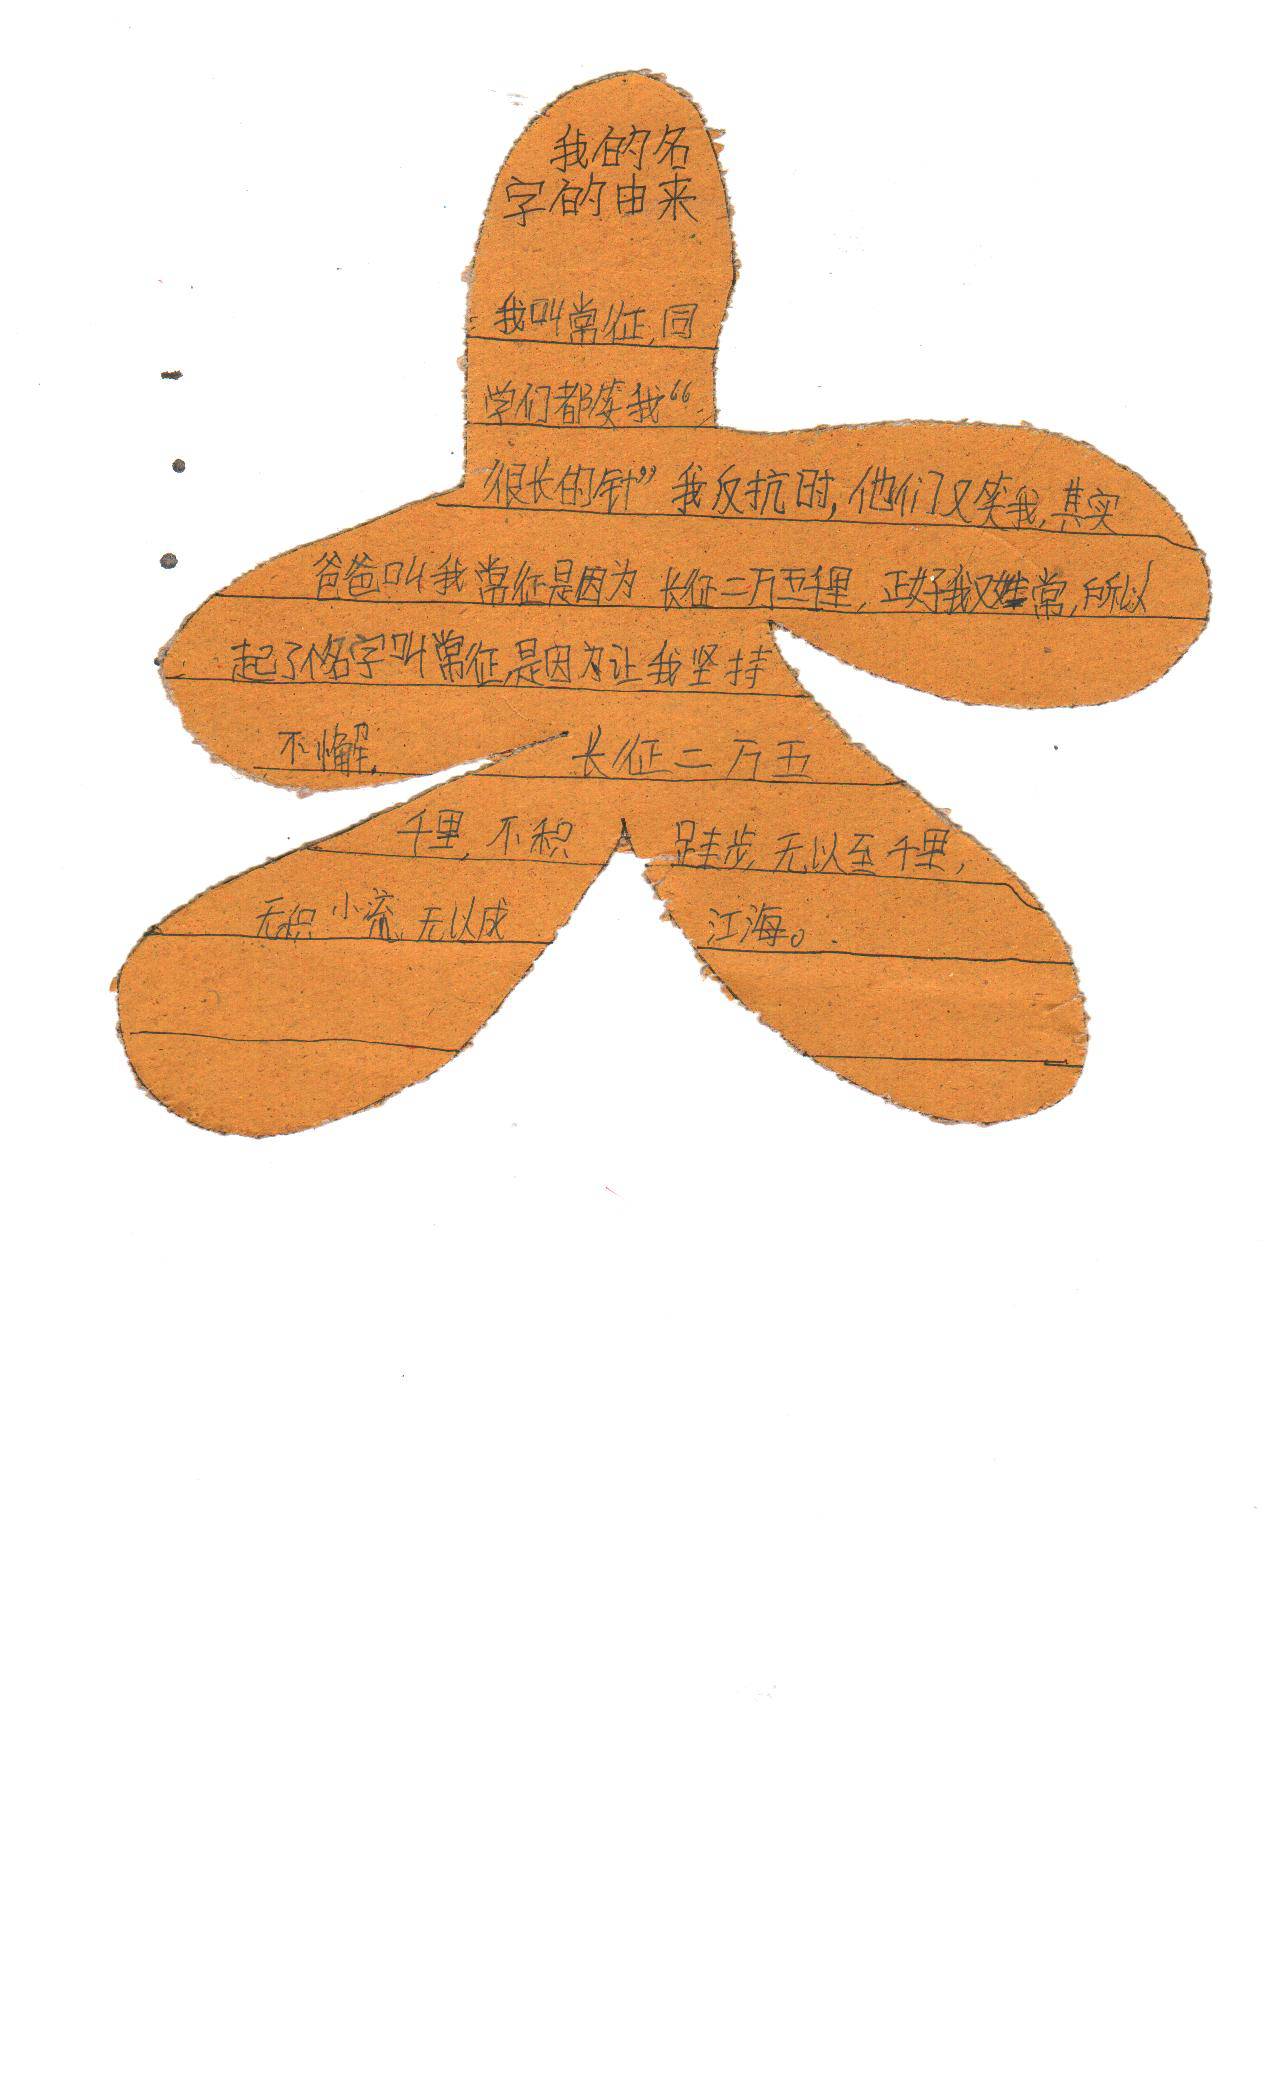 我的名
字的由来
我叫常征,同
学们都笑我“
很长的针”我反抗时,他们又笑我,其实
爸爸叫我常征是因为长征二万五千里,正好我又姓常,所以
起了个名字叫常征,是因为让我坚持
不懈,长征二万五
千里,不积跬步,无以至千里,
无积小流,无以成江海。